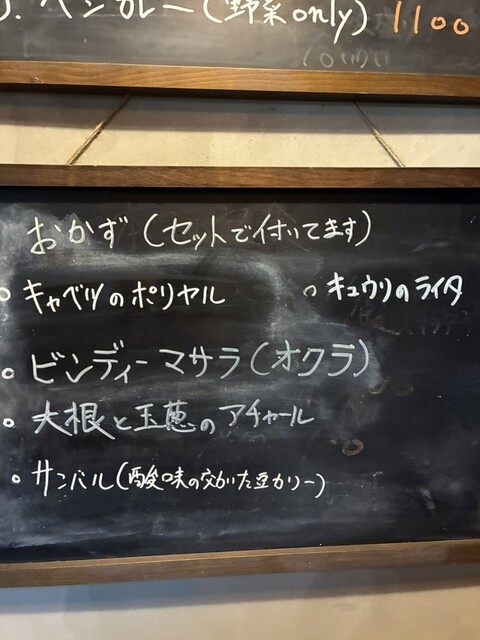 ベジカレー(野菜only) 1100
おかず(セットで付いてます)
○ キャベツのポリヤル ○ キュウリのライタ
○ ビンディーマサラ(オクラ)
○ 大根と玉葱のアチャール
○ サンバル(酸味の効いた豆カリー)